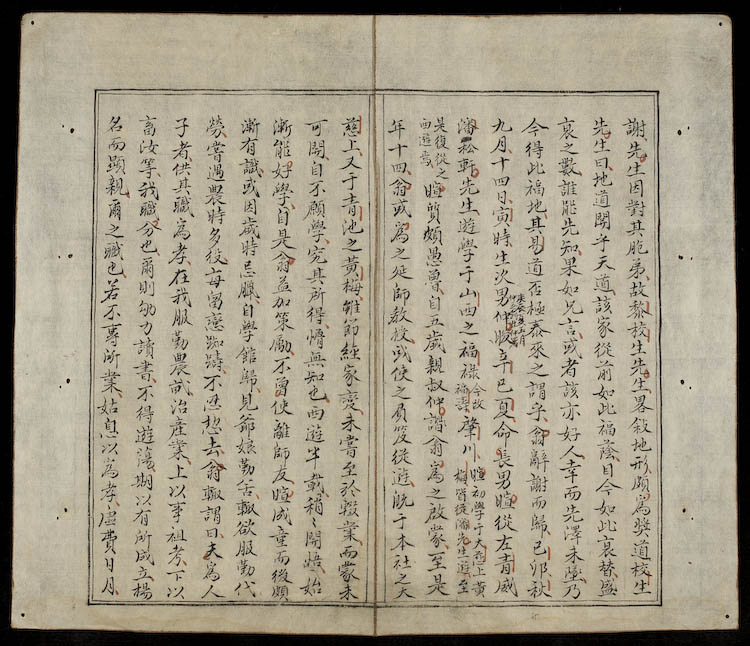 謝先生因對其胞弟故黎校生先生畧敘地形頗為奨道校生
先生曰地道關乎天道該家從前如此福蔭目今如此衰替盛
衰之數誰能先知果如兄言或者該亦好人幸而先澤未墜乃
今得此福地其易道否極泰來之謂乎翁辭謝而歸己卯秋
九月十四日寅時生次男仲辛巳夏命長男暄從左青威
潘松軒先生遊學于山西之福禄今改福謙肇川暄初學于大慈上黃梅皆從潘先生遊至
是復從之西遊暄質頗愚魯自五歲親叔仲諧翁為之啟蒙至是
年十四翁或為之延師教授或使之負笈從遊既于本社之大
慈上又于青池之黃梅雖節經家變未嘗至於輟業而蒙未
可開自不願學究其所得懵無知也西遊半載稍〻開悟始
漸能好學自是翁益加策勵不曾使離師友暄成童而後頗
漸有識或因歲時忌臘自學館歸見爺娘勤苦輒欲服勤代
勞嘗遇農時多役毋當戀踟躊不忍恝去翁輒謂曰夫為人
子者供其職為孝在我服勤農畝治產業上以事祖考下以
畜汝等我職分也爾則劬力讀書不得遊蕩期以有所成立楊
名而顯親爾之職也若不專所業姑息以為孝虛費日月